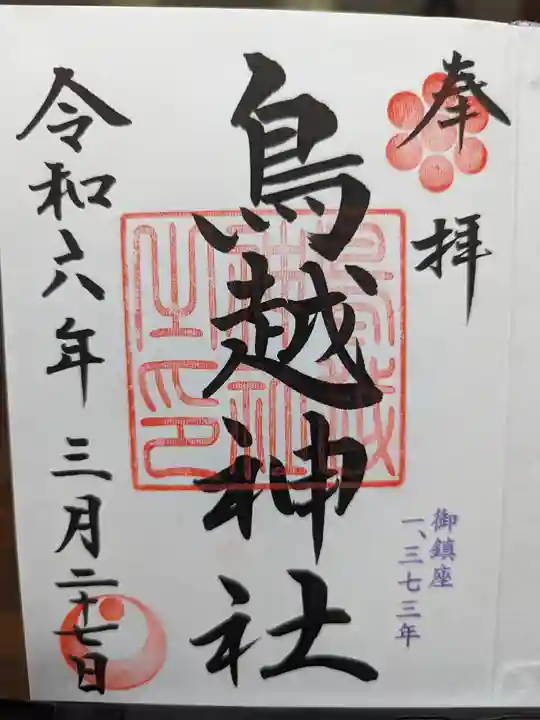 奉拝
鳥越神社
鳥越
神社
之印
御鎮座
一、三七三年
令和六年三月二十七日